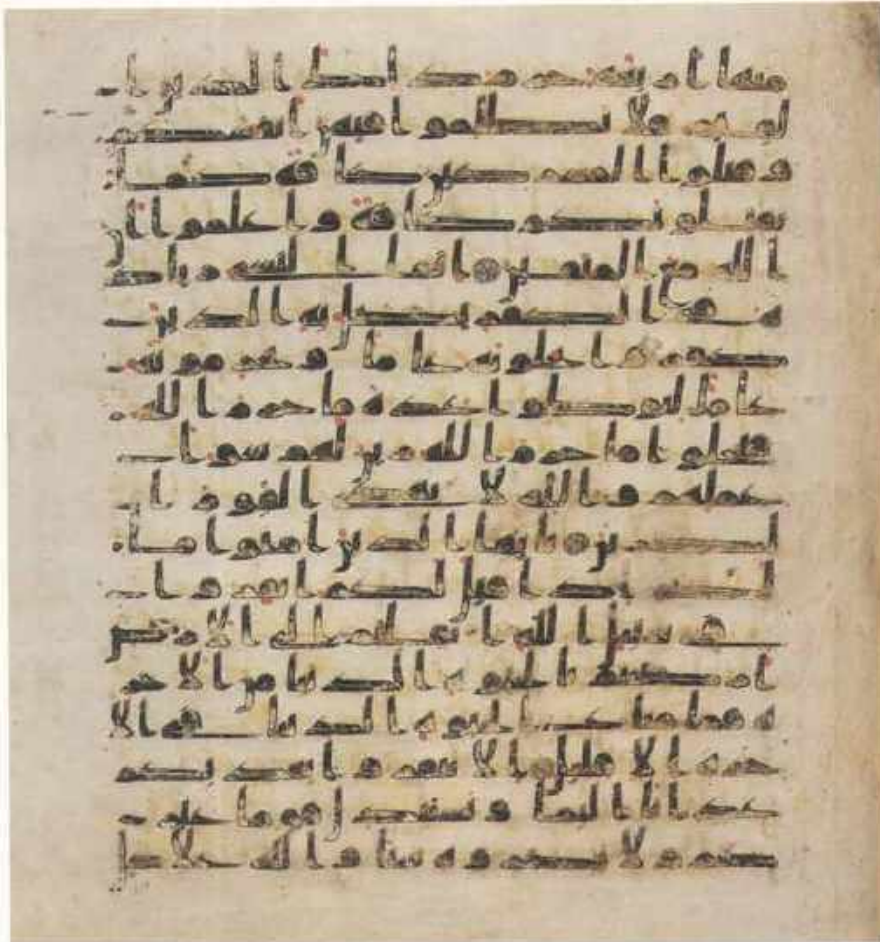 منها اربعة حرم ذلك الدين ا
لقيم فلا تظلموا فيهن انفسكم
وقتلوا المشركين كافة كما
يقتلونكم كافة واعلموا ان
الله مع المتقين انما النسى زياد
ة فى الكفر يضل به الذين
كفروا يحلونه عاما ويحرمونه
عاما ليوطوا عدة ما حرم الله
فيحلوا ما حرم الله زين لهم سو ا
عملهم والله لا يهدى القوم ا
لكفرين يايها الذين امنوا ما
لكم اذا قيل لكم انفروا
فى سبيل الله اثاقلتم الى الارض
ارضيتم بالحيوة الدنيا من الاخر
ة فما متع الحيوة الدنيا فى الا
خرة الا قليل الا تنفروا يعذبكم
عذابا اليما ويستبدل قوما غير
كم ولا تضروه شيا والله على كل